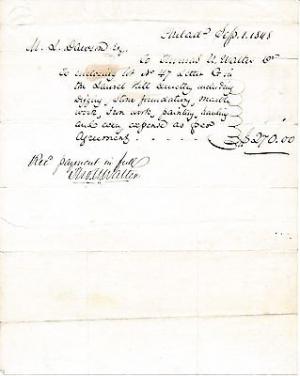 Philadª Sep. 1. 1848
M. L. Dawson Esq.
To Thomas U. Walter Dr
To enclosing lot Nº 47 Letter G in
the Laurel Hill Cemetery including
digging, Stone foundations, Marble
work, Iron work, painting, hauling
and every expense as per
Agreement $270.00
Recd payment in full
Thos U Walter